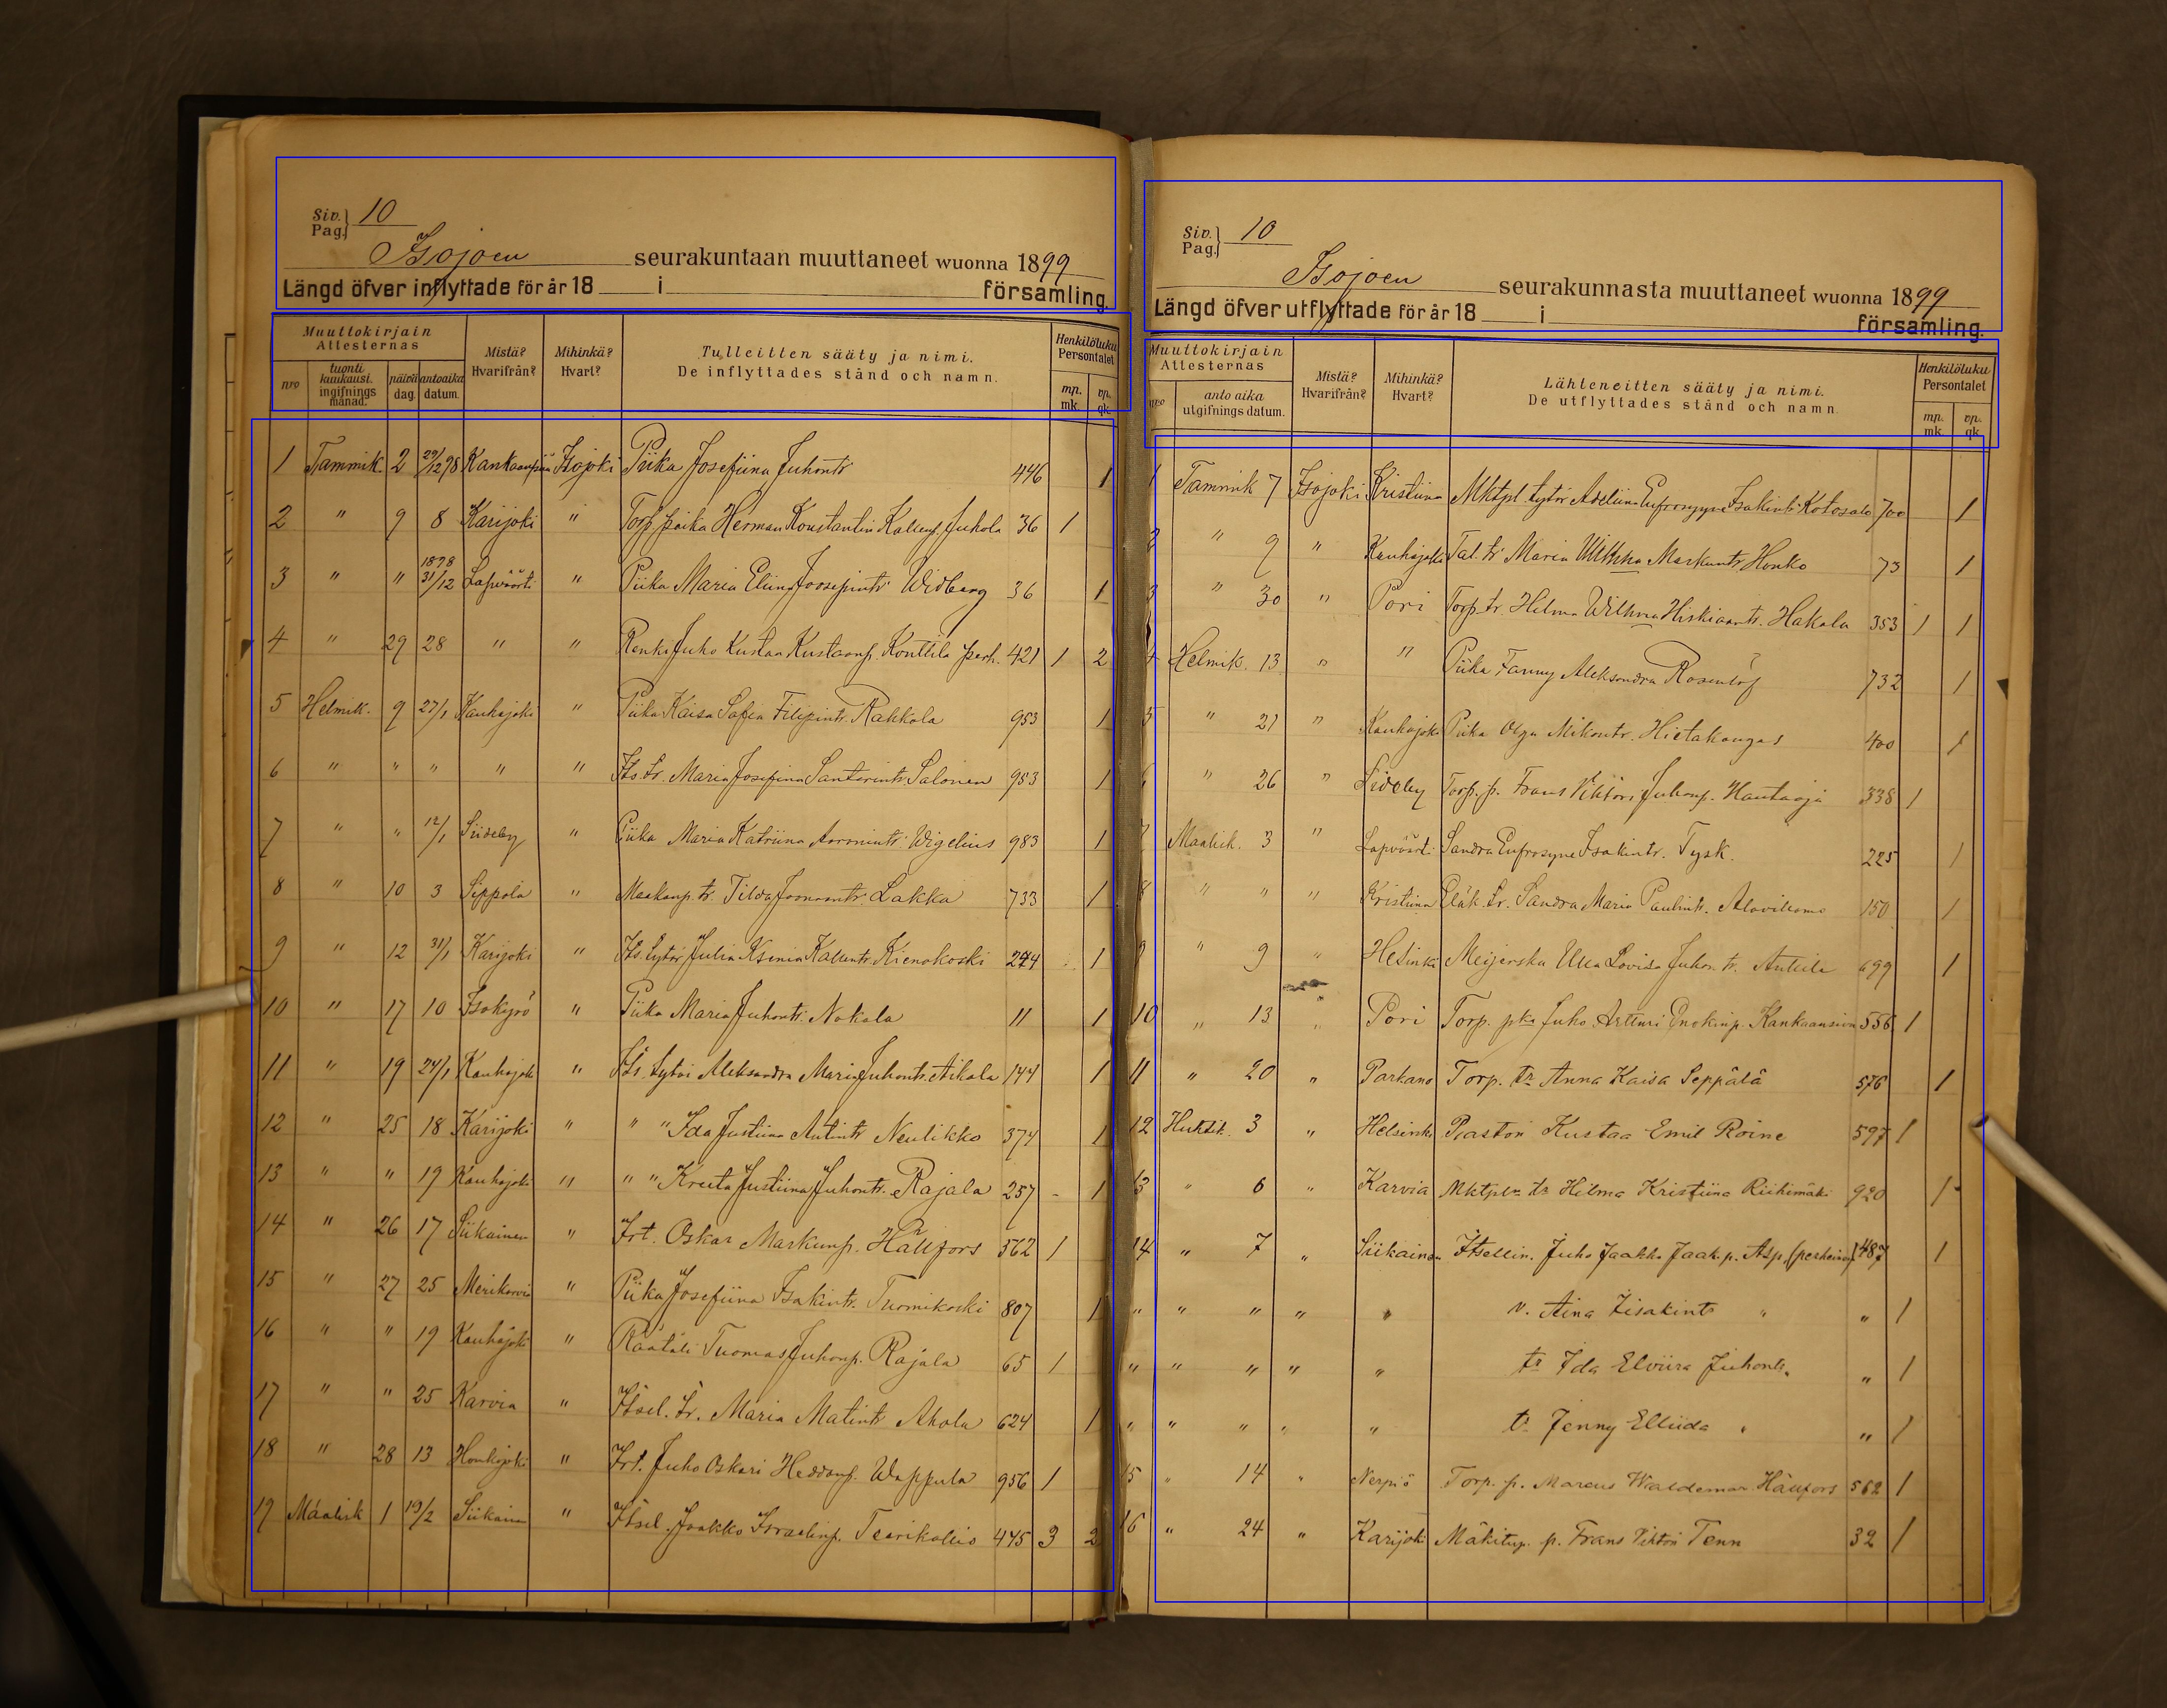 Siv. Pag. } 10
Isojoen seurakuntaan muuttaneet wuonna 1899
Längd öfver inflyttade för år 18 i församling.
Muuttokirjain Attesternas Mistä? Hvarifrån? Mihinkä? Hvart? Tulleitten sääty ja nimi. De inflyttades stånd och namn. Henkilöluku Persontalet
nro tuonti kuukausi. ingifnings månad. päivä dag. antoaika datum. mp. mk. vp. qk.
1 Tammik. 2 29/12 98 Kankaanpää Isojoki Piika Josefiina Juhontr 446 1
2 " 9 8 Karijoki " Torp. poika Herman Konstantin Kallenp. Juhola 36 1
3 " " 1898 31/12 Lapväärti " Piika Maria Eliina Joosepintr Widberg 36 1
4 " 29 28 " " Renki Juho Kustaa Kustaanp. Konttila perh. 421 1 2
5 Helmik. 9 27/1 Kauhajoki " Piika Kaisa Sofia Filipintr. Rakkola 953 1
6 " " " " " Its tr. Maria Josefina Santerintr. Salonen 953 1
7 " " 12/1 Siideby " Piika Maria Katriina Aaronintr. Wigelius 983 1
8 " 10 3 Sippola " Maakaup. tr. Tilda Joonaantr. Lakka 733 1
9 " 12 31/1 Karijoki " Its. tytär Julia Ksenia Kallentr. Kienokoski 244 1
10 " 17 10 Isokyrö " Piika Maria Juhontr. Nokala 11 1
11 " 19 24/1 Kauhajoki " Its. tytär Aleksandra Maria Juhontr. Aikala 144 1
12 " 25 18 Karijoki " " " Ida Justiina Antintr Neulikko 374 1
13 " " 19 Kauhajoki " " " Kreeta Justiina Juhontr. Rajala 257 - 1
14 " 26 17 Siikainen " Irt. Oskar Markunp. Hällfors 562 1
15 " 27 25 Merikarvia " Piika Josefiina Isakintr. Tuomikoski 807 1
16 " " 19 Kauhajoki " Räätäli Tuomas Juhonp. Rajala 65 1
17 " " 25 Karvia " Itsel. tr. Maria Matintr Ahola 624 1
18 " 28 13 Honkajoki " Irt. Juho Oskari Heddanp. Wappula 956 1
19 Maalisk 1 19/2 Siikainen " Itsel. Jaakko Israelinp. Teerikallio 445 3 2
Siv. Pag. } 10
Isojoen seurakunnasta muuttaneet wuonna 1899
Längd öfver utflyttade för år 18 i församling.
Muuttokirjain Attesternas Mistä? Hvarifrån? Mihinkä? Hvart? Lähteneitten sääty ja nimi. De utflyttades stånd och namn. Henkilöluku Persontalet
nro anto aika utgifnings datum. mp. mk. vp. qk.
1 Tammik 7 Isojoki Kristiina Mktpl. tytär Adeliina Eufrosyyne Isakintr. Kotosalo 700 1
2 " 9 " Kauhajoki Tal. tr Maria Markuntr Honko 73 1
3 " 30 " Pori Torp. tr. Helma Wilhma Hiskiaantr. Hakala 353 1 1
4 Helmik. 13 " " Piika Fanny Aleksandra Rosenlöf 732 1
5 " 21 " Kauhajoki Piika Olga Mikontr. Hietakangas 400 1
6 " 26 " Sideby Torp. p. Frans Viktori Juhonp. Hautaoja 338 1
7 Maalisk. 3 " Lapväärti Sandra Eufrosyne Isakintr. Tysk. 225 1
8 " " " Kristiina Eläk. tr. Sandra Maria Paulintr. Alaviitamo 150 1
9 " 9 " Helsinki Meijerska Ulla Lovisa Juhon tr. Anttila 699 1
10 " 13 " Pori Torp. pka Juho Artturi Enokinp. Kankaansivu 556 1
11 " 20 " Parkano Torp. tr Anna Kaisa Seppälä 576 1
12 Huhtik. 3 " Helsinki Pastori Kustaa Emil Roine 597 1
13 " 6 " Karvia Mktpln tr Hilma Kristiina Riihimäki 920 1
14 " 7 " Siikainen Itsellin. Juho Jaakko Jaak.p. Asp, (perheineen) 487 1
" " " " " v. Aina Iisakintr " " 1
" " " " " tr Ida Elviira Juhontr. " 1
" " " " " tr Jenny Elliida " " 1
15 " 14 " Nerpiö Torp. p. Marcus Waldemar Hällfors 562 1
16 " 24 " Karijoki Mäkitup. p. Frans Viktori Tenn 32 1